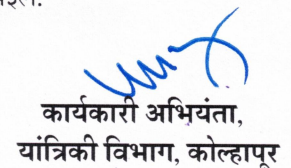 कार्यकारी अभियंता,
यांत्रिकी विभाग, कोल्हापूर